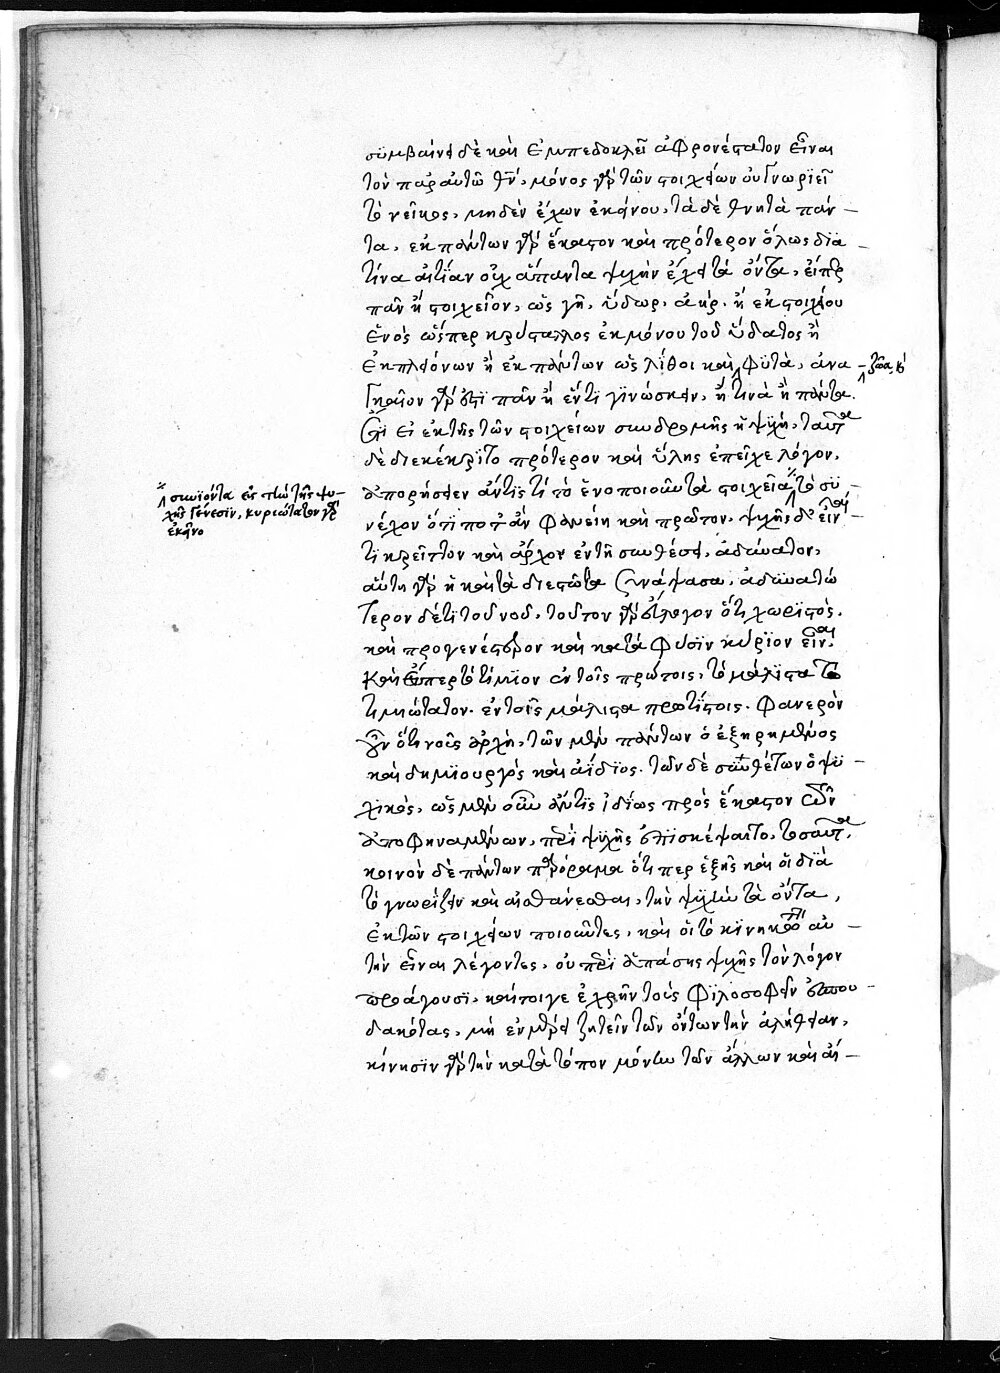 συμβαίνει δὲ καὶ Ἐμπεδοκλεῖ ἀφρονέστατον εἶναι
τὸν παρ αὐτῶ θν, μόνος γὰρ τῶν στοιχείων οὐ γνωριεῖ
τὸ νεῖκος, μηδὲν ἔχων ἐκείνου, τὰ δὲ θνητὰ πάν–
τα, ἐκ πάντων γὰρ ἕκαστον καὶ πρότερον ὅλως διὰ –
τίνα αἰτίαν οὐχ ἅπαντα ψυχὴν ἔχει τὰ ὄντα, εἴπερ
πᾶν ἢ στοιχεῖον, ὡς γῆ, ὕδωρ, ἀὴρ. ἢ ἐκ στοιχείου
ἑνὸς ὥσπερ κρύσταλλος ἐκ μόνου τοῦ ὕδατος ἢ
ἐκ πλειόνων ἢ ἐκ πάντων ὡς λίθοι καὶ φυτὰ, ἀνα –
ζῶα, κ
γκαῖον γὰρ ὅτι πᾶν ἢ ἕν τι γινώσκειν, ἢ τινὰ ἢ πάντα.
εἰ ἐκ τῆς τῶν στοιχείων συνδρομῆς ἡ ψυχή, ταῦτα
δὲ διεκέκριτο πρότερον καὶ ὕλης ἐπεῖχε λόγον,
ἀπορήσειεν ἄν τις τί τὸ ἑνοποιοῦν τὰ στοιχεῖα τὸ συ –
συνιόντα εἰς τὴν τῆς ψυ–
χῆς γένεσιν, κυριώτατον γὰρ
ἐκεῖνο
νέχον ὅτι ποτ ἂν φανείη καὶ πρῶτον, ψυχῆς δ εἶναι –
τι κρεῖττον καὶ ἄρχον ἐν τῆ συνθέσει, ἀδύνατον,
αὕτη γὰρ ἡ καὶ τὰ διεστῶτα συνάψασα, ἀδυνατώ
τερον δέ τι τοῦ νοῦ, τοῦτον γὰρ ὅτι χωριστὸς,
καὶ προγενέστερον καὶ κατὰ φύσιν κύριον εἶναι.
καὶ εἴπερ τὸ τίμιον ἐν τοῖς πρώτοις, τὸ μάλιστα τὸ
τιμιώτατον. ἐν τοῖς μάλιστα πρωτίστοις. φανερὸν
οὖν ὅτι νοῦς ἀρχὴ, τῶν μὲν πάντων ὁ ἐξηρημένος
καὶ δημιουργὸς καὶ ἀΐδιος. τῶν δὲ συνθέτων ὁ ψυ –
χικὸς, ὡς μὲν οὖν ἄν τις ἰδίως πρὸς ἕκαστον τῶν
ἀποφηναμένων, περὶ ψυχῆς ἐπισκέψαιτο, τοσαῦτα,
κοινὸν δὲ πάντων παρόραμα ὅτι περ ἑξῆς καὶ οἱ διὰ
τὸ γνωρίζειν καὶ αἰσθάνεσθαι, τὴν ψυχὴν τὰ ὄντα,
ἐκ τῶν στοιχείων ποιοῦντες, καὶ οἱ τὸ κινητικώτατον αὐ –
τὴν εἶναι λέγοντες, οὐ περὶ ἁπάσης ψυχῆς τὸν λόγον
προάγουσι, καίτοιγε ἐχρῆν τοὺς φιλοσοφεῖν ἐσπου –
δακότας, μὴ ἐν μέρει ζητεῖν τῶν ὄντων τὴν ἀλήθειαν,
κίνησιν γὰρ τὴν κατὰ τόπον μόνην τῶν ἄλλων καὶ αἰ –